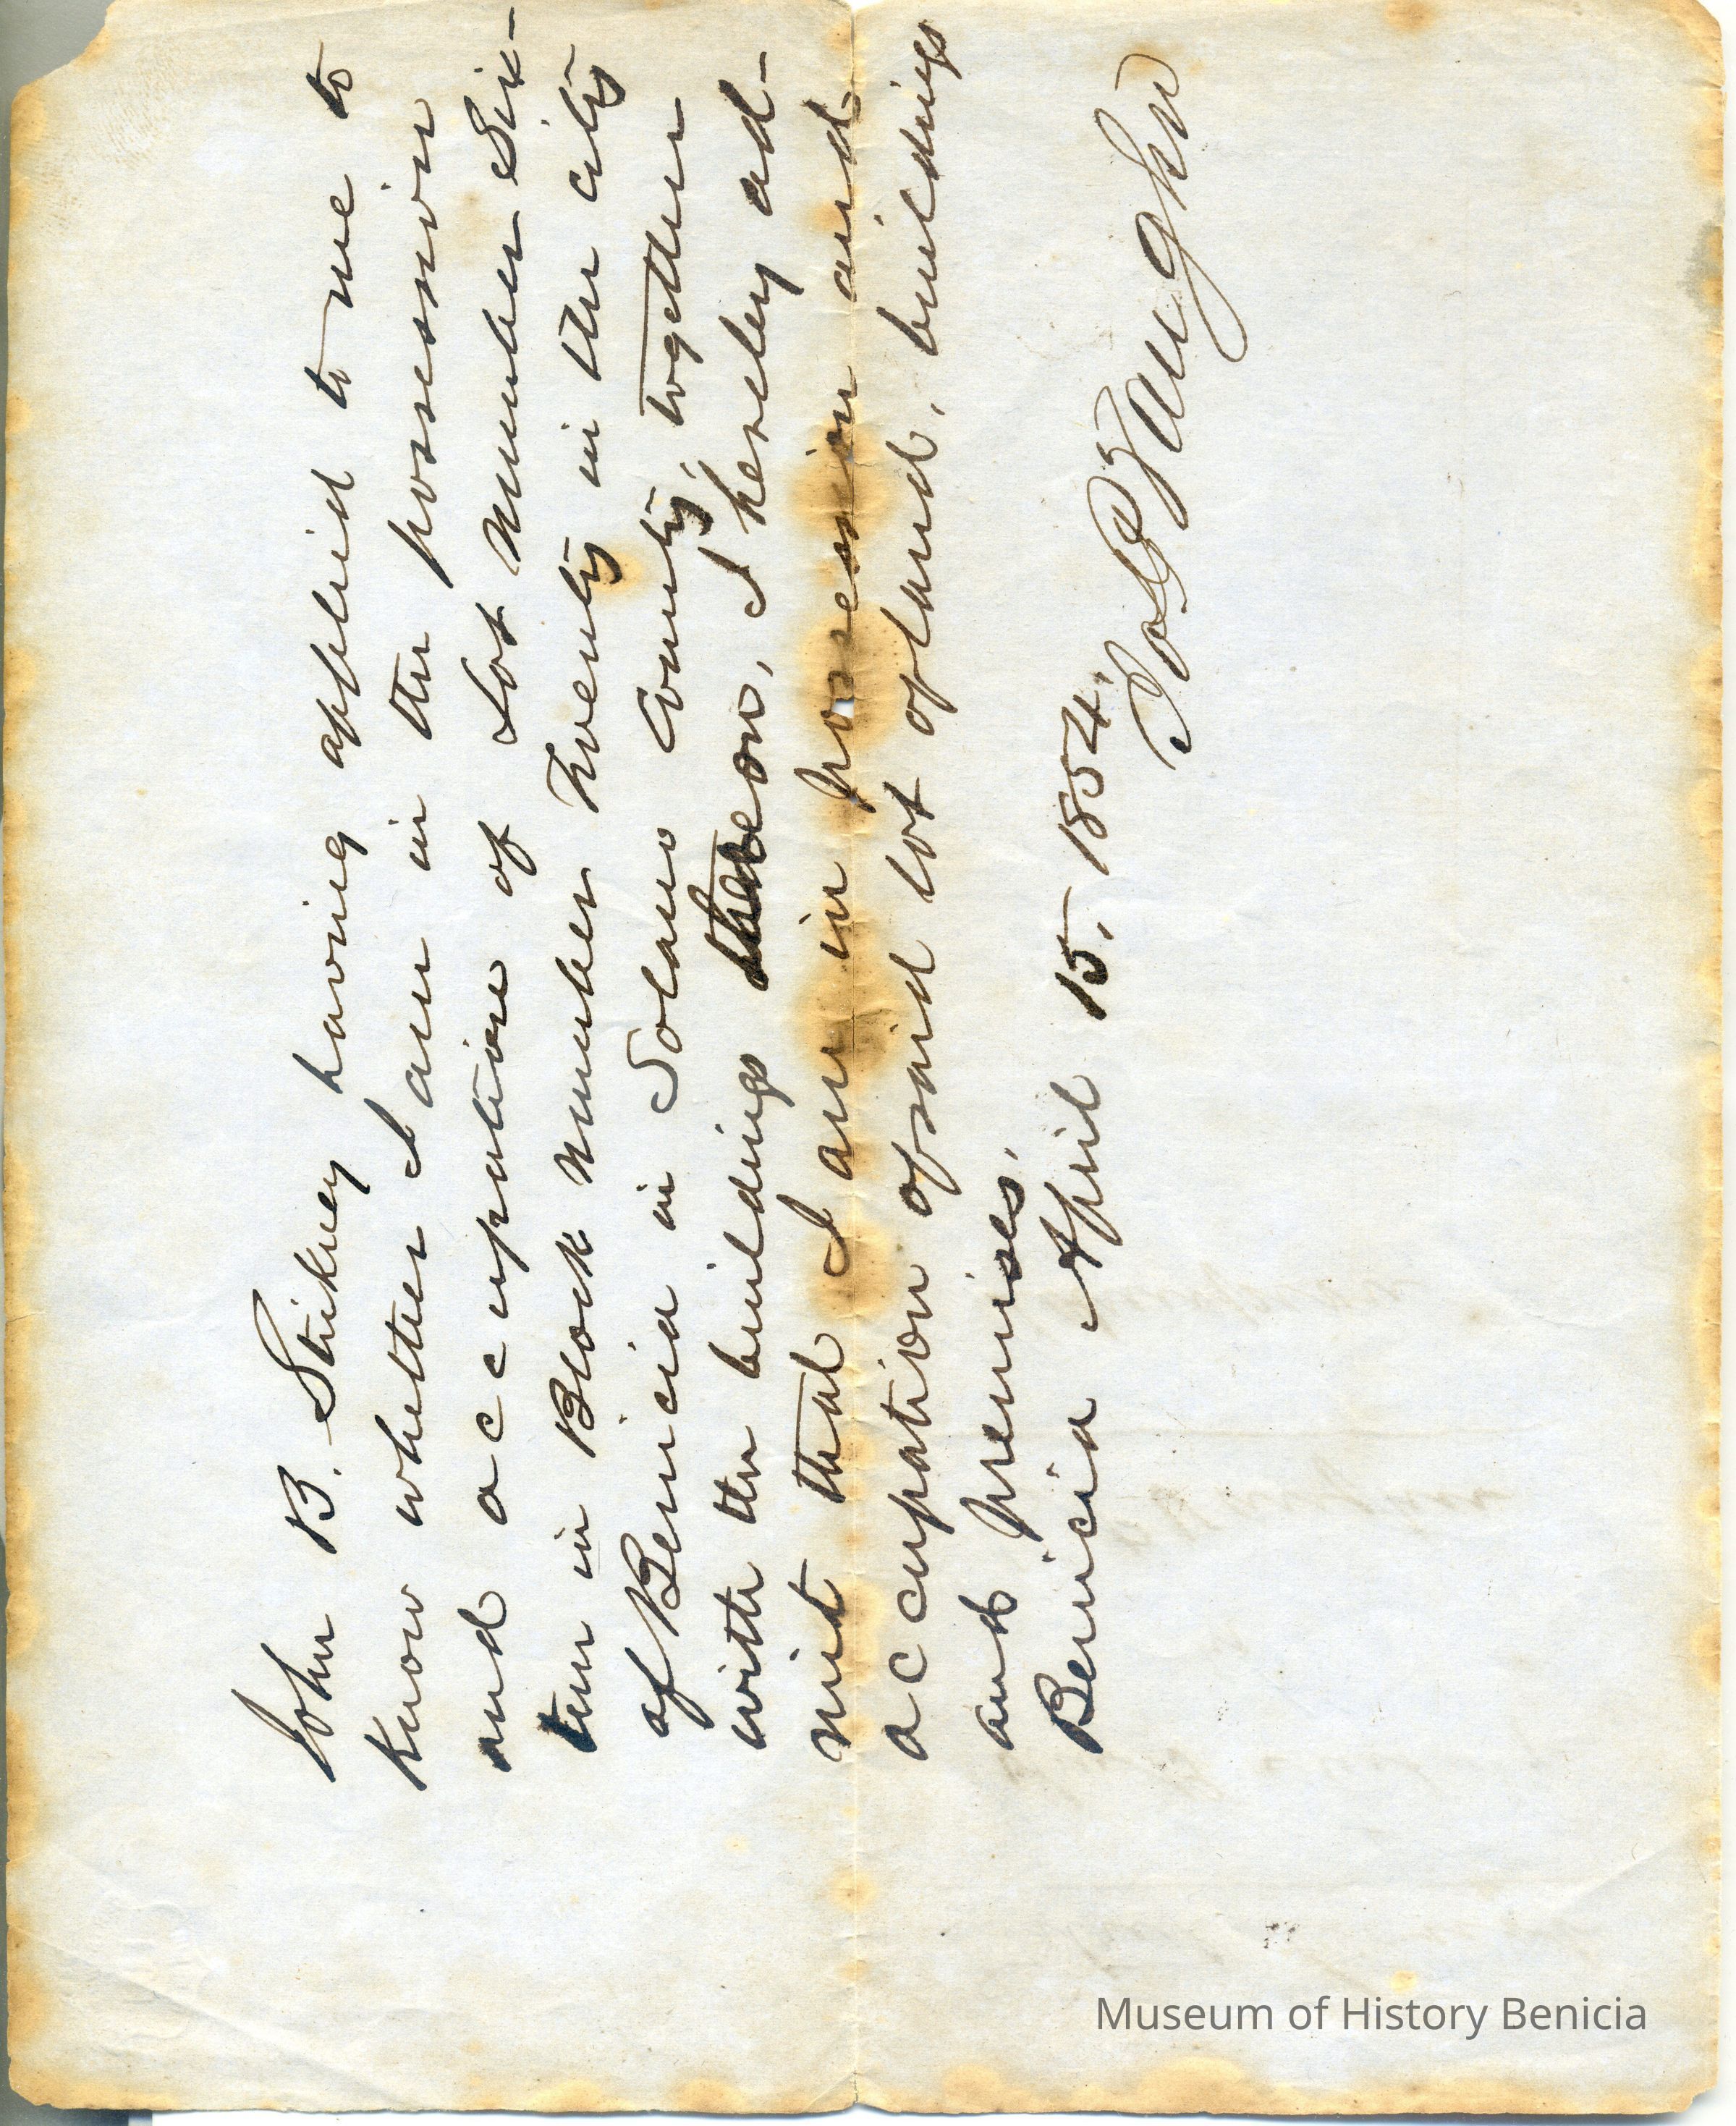 John B. Stikney having applied to me to
know whether I am in the possession
and occupation of Lot number Six-
teen in Block number Twenty in the city
of Benicia in Solano County, together
with the buildings thereon, I hereby ad-
mit that I am in possession and
occupation of said lot of land, buildings
and premises.
Benicia April 15, 1854.
Vaughn
Museum of History Benicia